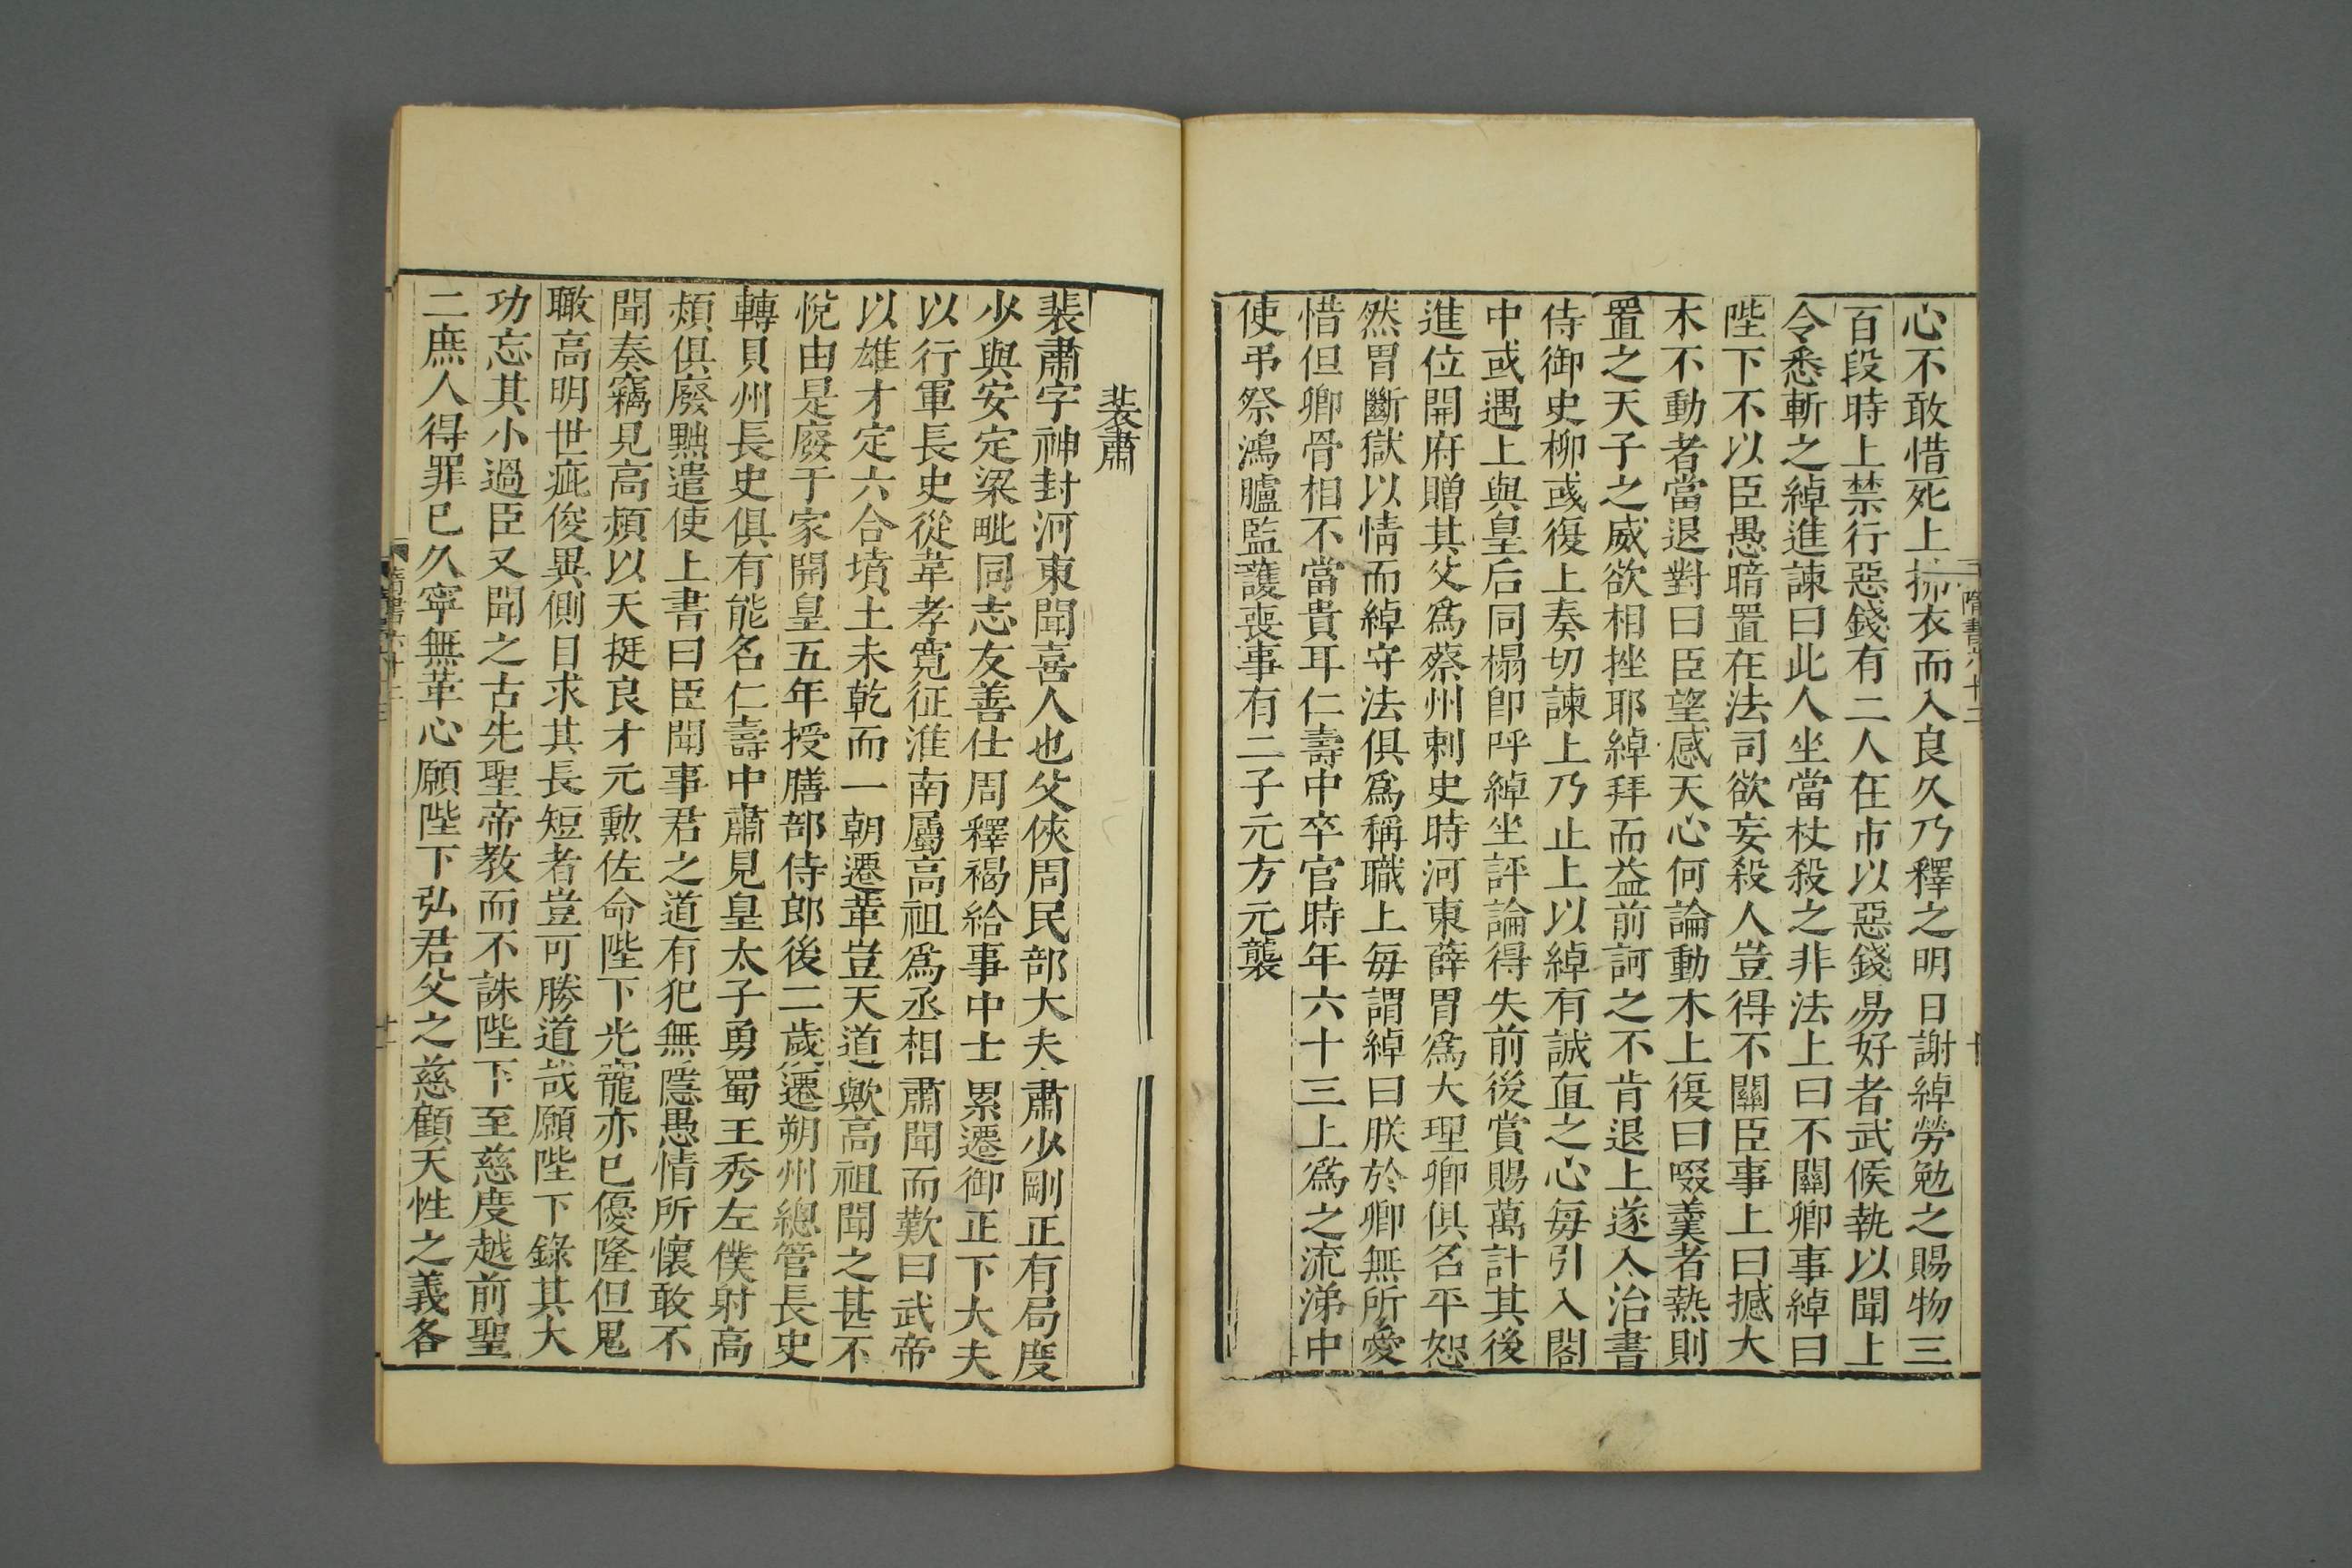 心不敢惜死上拂衣而入良久乃釋之明日謝綽勞勉之賜物三
百段時上禁行惡錢有二人在市以惡錢易好者武候執以聞上
令悉斬之綽進諫曰此人坐當杖殺之非法上曰不關卿事綽曰
陛下不以臣愚暗置在法司欲妄殺人豈得不關臣事上曰撼大
木不動者當退對曰臣望感天心何論動木上復曰啜羹者熱則
置之天子之威欲相挫耶綽拜而益前訶之不肯退上遂入治書
侍御史柳彧復上奏切諫上乃止上以綽有誠直之心每引入閤
中或遇上與皇后同榻卽呼綽坐評論得失前後賞賜萬計其後
進位開府贈其父爲蔡州刺史時河東薛胄爲大理卿俱名平恕
然胄斷獄以情而綽守法俱爲稱職上每謂綽曰朕於卿無所愛
惜但卿骨相不當貴耳仁壽中卒官時年六十三上爲之流涕中
使弔祭鴻臚監護喪事有二子元方元襲
裴肅
裴肅字神封河東聞喜人也父俠周民部大夫肅少剛正有局度
少與安定梁毗同志友善仕周釋褐給事中士累遷御正下大夫
以行軍長史從韋孝寬征淮南屬高祖爲丞相肅聞而歎曰武帝
以雄才定六合墳土未乾而一朝遷革豈天道歟高祖聞之甚不
悅由是廢于家開皇五年授膳部侍郎後二歲遷朔州總管長史
轉貝州長史俱有能名仁壽中肅見皇太子勇蜀王秀左僕射高
熲俱廢黜遣使上書曰臣聞事君之道有犯無隱愚情所懷敢不
聞奏竊見高熲以天挺良才元勲佐命陛下光寵亦已優隆但鬼
瞰高明世疵俊異側目求其長短者豈可勝道哉願陛下錄其大
功忘其小過臣又聞之古先聖帝教而不誅陛下至慈度越前聖
二庶人得罪已久寧無革心願陛下弘君父之慈顧天性之義各
隋書六十二
十一